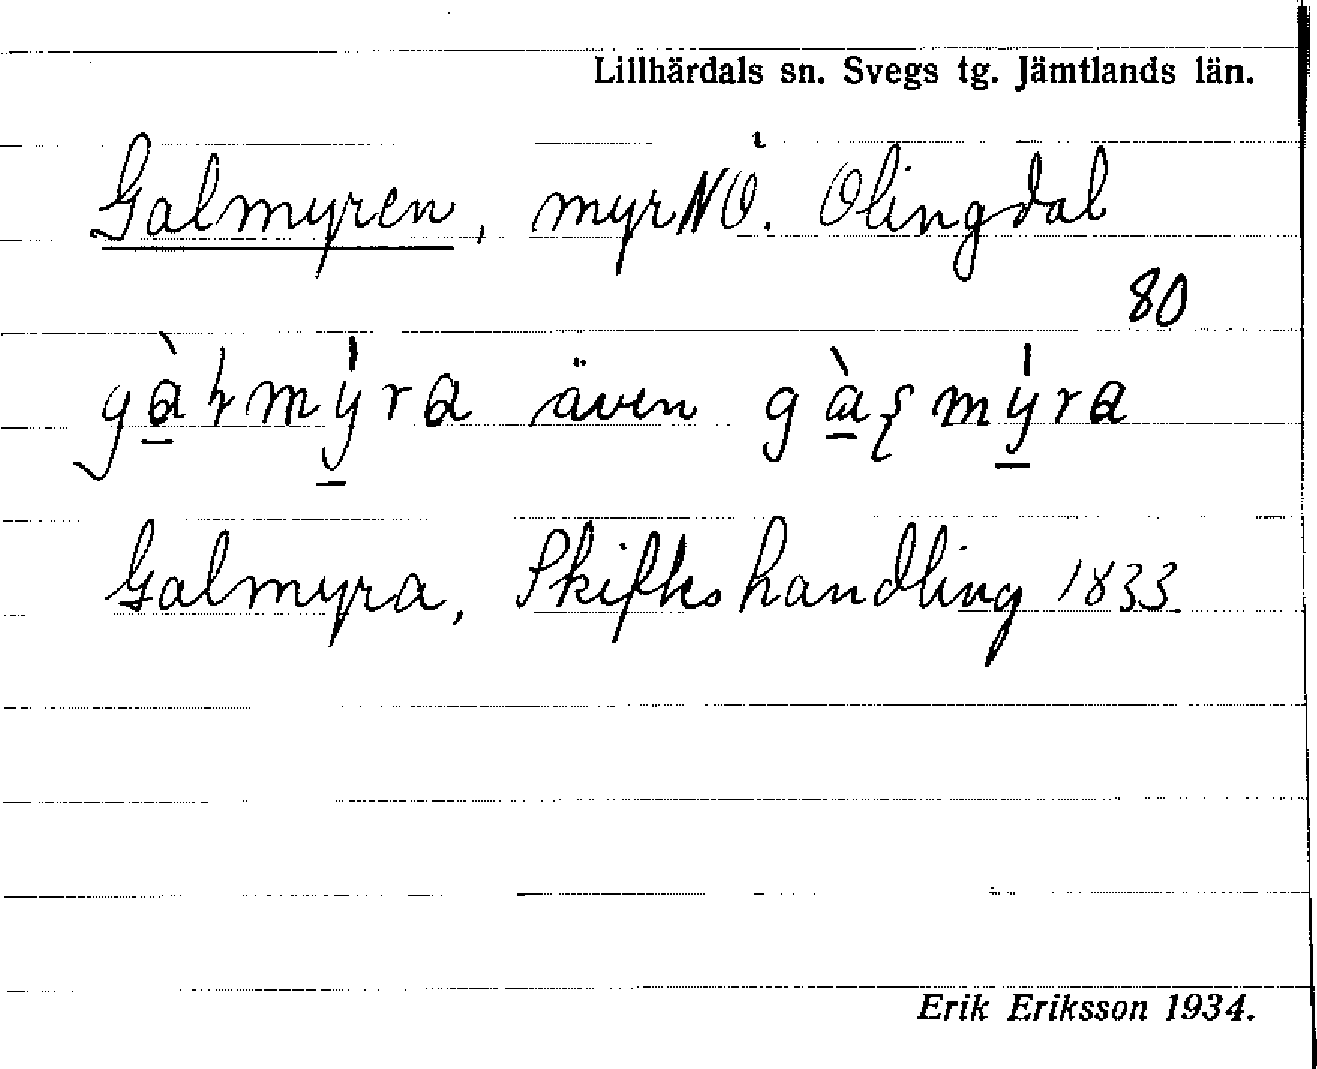 Lillhärdals sn. Svegs tg. Jämtlands län.
Galmyren, myr NÖ. Olingdal
80
även
Galmyra, Skifteshandling 1833
Erik Eriksson 1934.